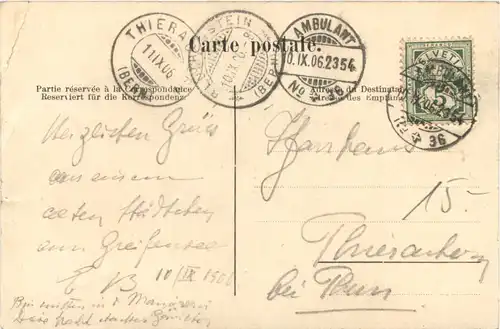 Carte postale.
THIERACH
11.IX.06
(BERN)
STEIN
(BERN)
AMBULANT
10.IX.06.2354
No 36
HELVETIA
5
36
Partie réservée à la Correspondance
Reserviert für die Korrespondenz
Adresse du Destinataire
Adresse des Empfängers
Herzlichen Gruss
aus einem
alten Städtchen
am Greifensee
E B 10/IX 1906
Pfarrhaus
15.-
Thierachern
bei Thun
Manöver